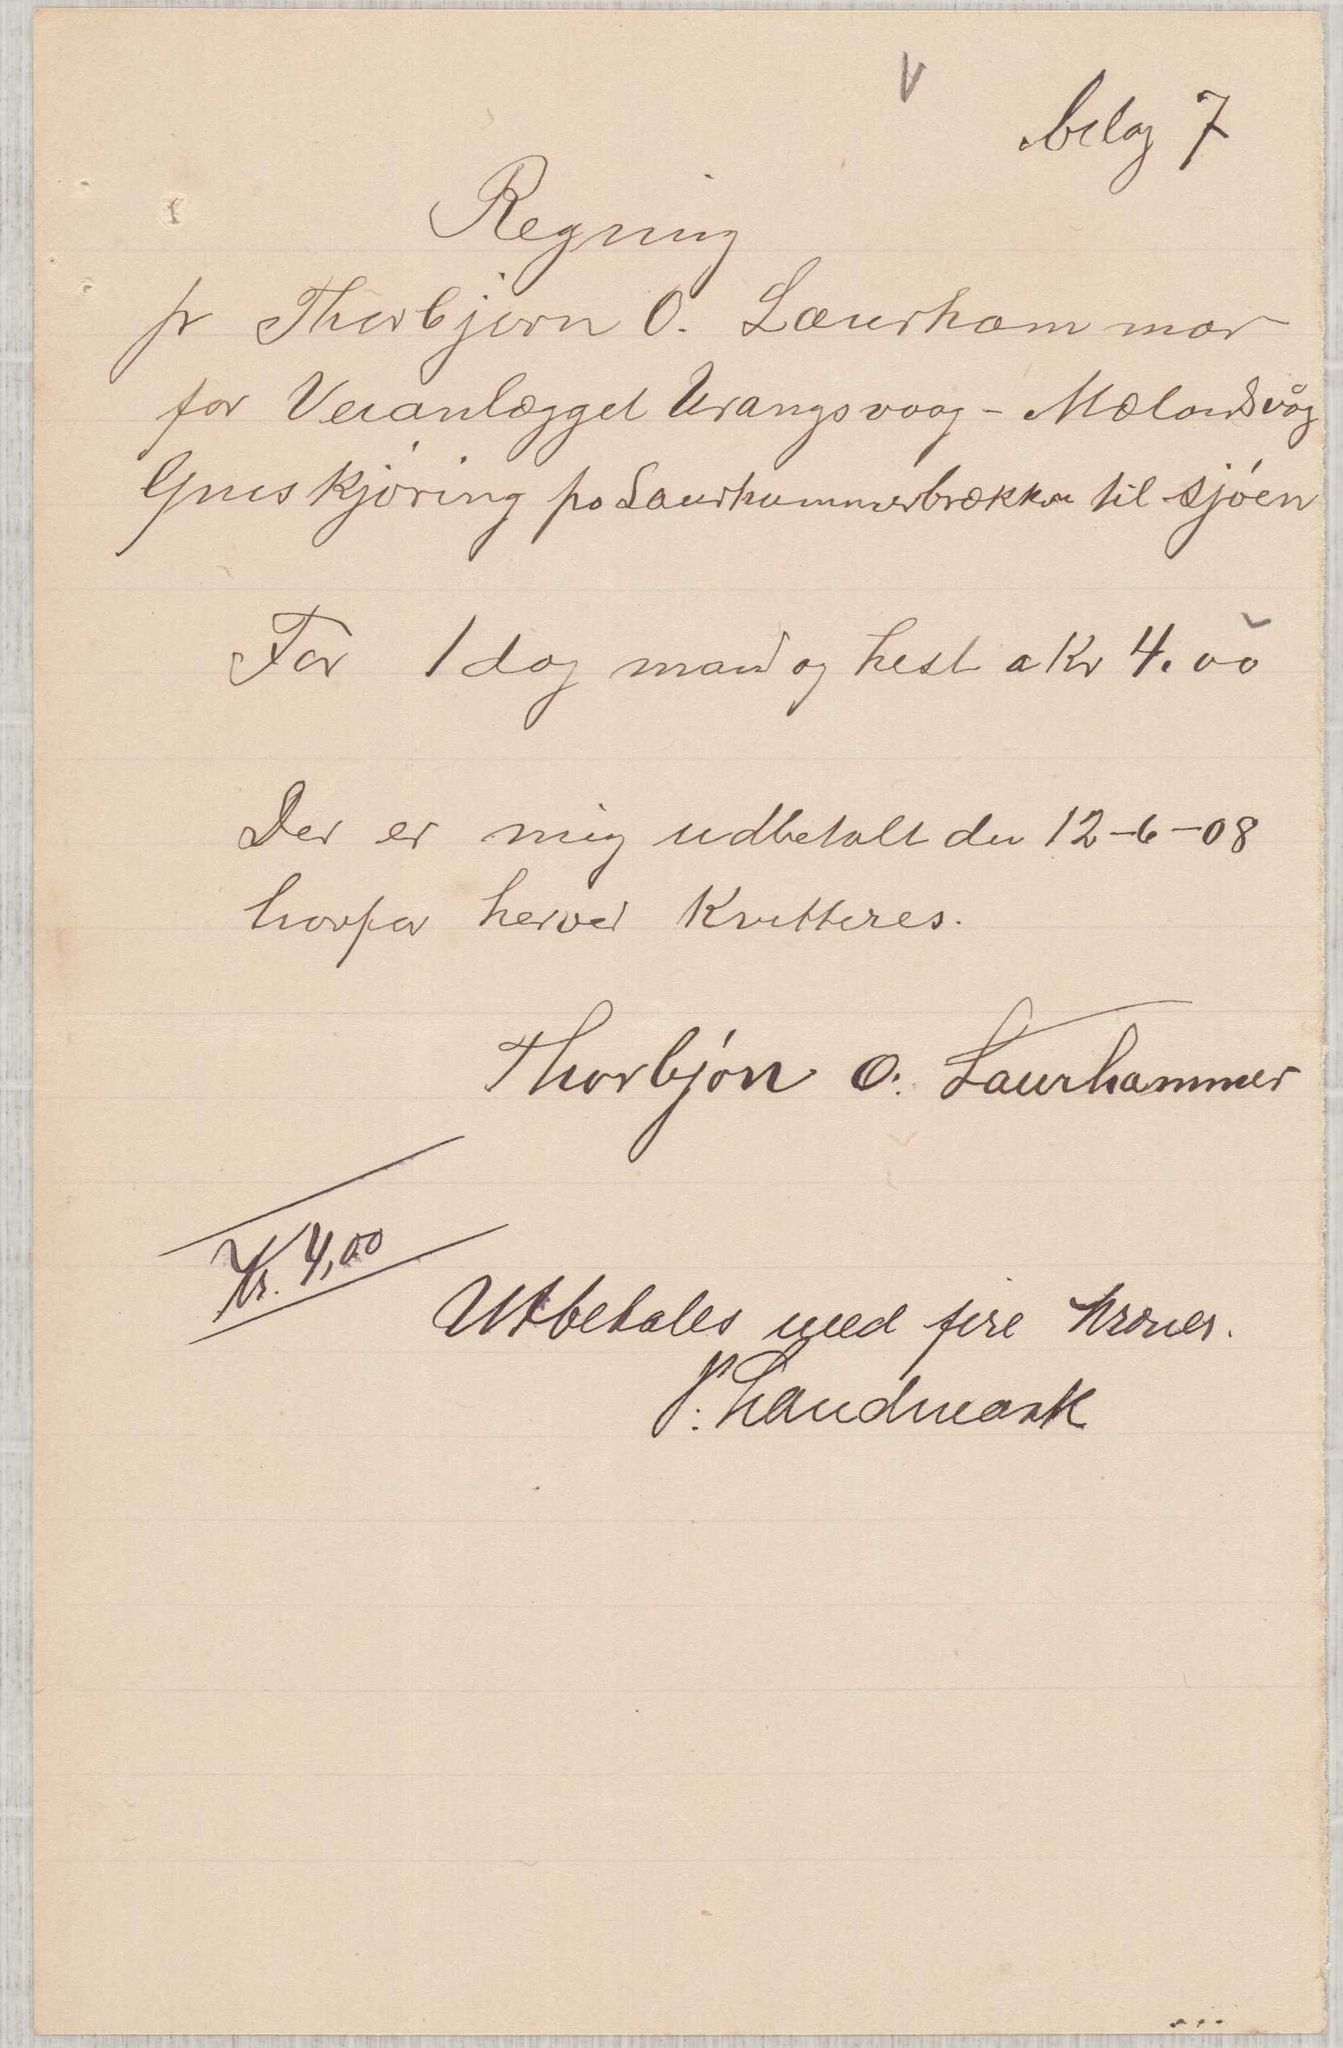 bilag 7
Regning
fr Thorbjørn O. Laurhammar
for Veianlægget Urangsvaag - Mælandsvåg
Gruskjøring på Laurhammerbrækken til sjøen
For 1 dag mand og hest a Kr 4.00
Der er mig udbetalt den 12-6-08
hvorfor herved Kvitteres.
Thorbjøn O. Laurhammer
Kr. 4,00
Utbetales med fire kroner.
P. Landmark